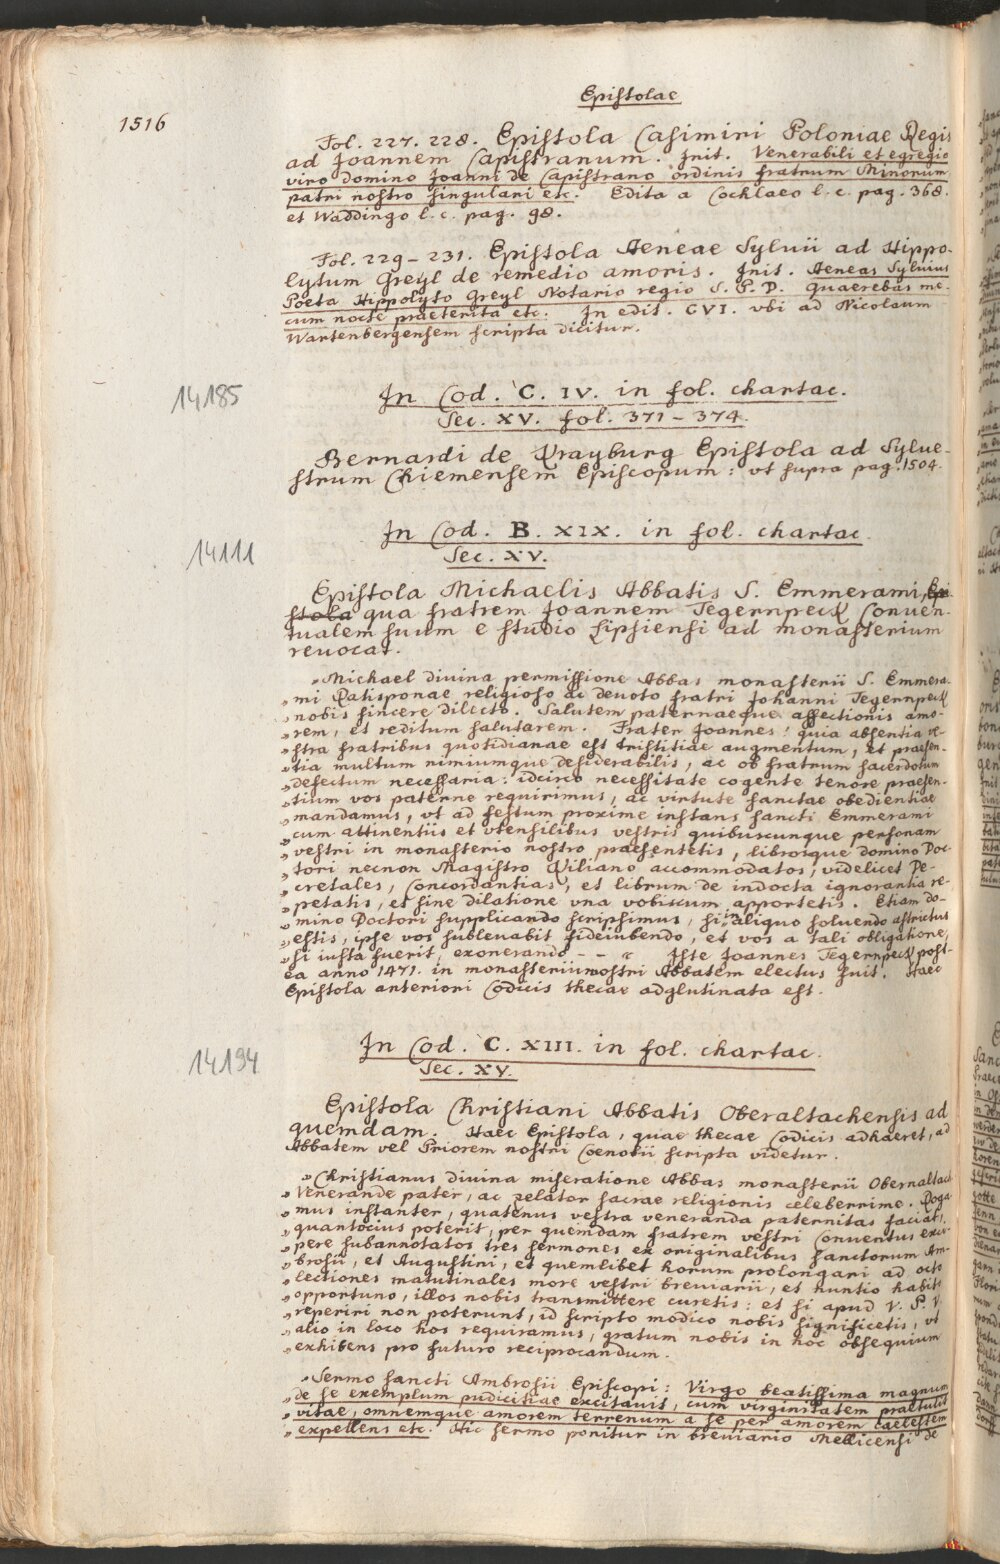 Epistolae
1516
Fol. 227. 228. Epistola Casimiri Poloniae Regis
ad Joannem Capistranum. Init. Venerabili et egregio
viro domino Joanni de Capistrano ordinis fratrum Minorum
patri nostro singulari etc. Edita a Cochlaeo l. c. pag. 368.
et Waddingo l. c. pag. 98.
Fol. 229 – 231. Epistola Aeneae Syluii ad Hippo-
lytum Greyl de remedio amoris. Init. Aeneas Syluius
Poeta Hippolyto Greyl Notario regio S. P. D. Quaerebas me-
cum nocte praeterita etc. In edit. CVI. vbi ad Nicolaum
Wartenbergensem scripta dicitur.
14185
In Cod. C. IV. in fol. chartac.
Sec. XV. fol. 371 – 374.
Bernardi de Krayburg Epistola ad Sylve-
strum Chiemensem Episcopum: vt supra pag. 1504.
14111
In Cod. B. XIX. in fol. chartac.
Sec. XV.
Epistola Michaelis Abbatis S. Emmerami, Epi-
stola qua fratrem Joannem Tegernpeck Conven-
tualem suum e studio Lipsiensi ad monasterium
revocat.
„Michael divina permissione Abbas monasterii S. Emmera-
„mi Ratisponae religioso ac devoto fratri Johanni Tegernpeck
„nobis sincere dilecto. Salutem paternaeque affectionis amo-
„rem, et reditum salutarem. Frater Joannes! quia absentia ve-
„stra fratribus quotidianae est tristitiae augmentum, et praesen-
„tia multum nimiumque desiderabilis, ac ob fratrum sacerdotum
„defectum necessaria: idcirco necessitate cogente tenore praesen-
„tium vos paterne requirimus, ac virtute sanctae obedientiae
„mandamus, vt ad festum proxime instans sancti Emmerami
„cum attinentiis et vtensilibus vestris quibuscunque personam
„vestri in monasterio nostro praesentetis, librosque domino Doc-
„tori necnon Magistro Kiliano accommodatos, videlicet De-
„cretales, Concordantias, et librum de indocta ignorantia re-
„petatis, et sine dilatione vna vobiscum apportetis. Etiam do-
„mino Doctori supplicando scripsimus, si in aliquo soluendo astrictus
„estis, ipse vos sublevabit fideiubendo, et vos a tali obligatione,
„si iusta fuerit, exonerando – – “ Iste Joannes Tegernpeck post-
ea anno 1471. in monasterii nostri Abbatem electus fuit. Haec
Epistola anteriori Codicis thecae adglutinata est.
14194
In Cod. C. XIII. in fol. chartac.
Sec. XV.
Epistola Christiani Abbatis Oberaltachensis ad
quemdam. Haec Epistola, quae thecae Codicis adhaeret, ad
Abbatem vel Priorem nostri Coenobii scripta videtur.
„Christianus divina miseratione Abbas monasterii Obernaltach
„Venerande pater, ac zelator sacrae religionis celeberrime. Roga-
„mus instanter, quatenus vestra veneranda paternitas faciat,
„quantocius poterit, per quemdam fratrem vestri Conventus exci-
„pere subannotatos tres sermones ex originalibus sanctorum Am-
„brosii, et Augustini, et quemlibet horum prolongari ad octo
„lectiones matutinales more vestri breviarii, et nuntio habito
„opportuno, illos nobis transmittere curetis: et si apud V. P. V.
„reperiri non poterunt, id scripto modico nobis significetis, vt
„alio in loco hos requiramus, gratum nobis in hoc obsequium
„exhibens pro futuro reciprocandum.
„Sermo sancti Ambrosii Episcopi: Virgo beatissima magnum
„de se exemplum pudicitiae excitavit, cum virginitatem praetulit
„vitae, omnemque amorem terrenum a se per amorem caelestem
„expellens etc. Hic sermo ponitur in breviario Mellicensi de